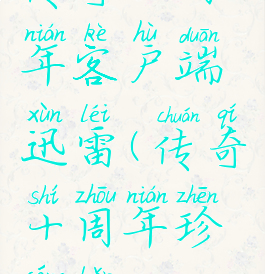 nián kè hù duān
年客户端
xùn léi chuán qí
迅雷(传奇
shí zhōu nián zhēn
十周年珍